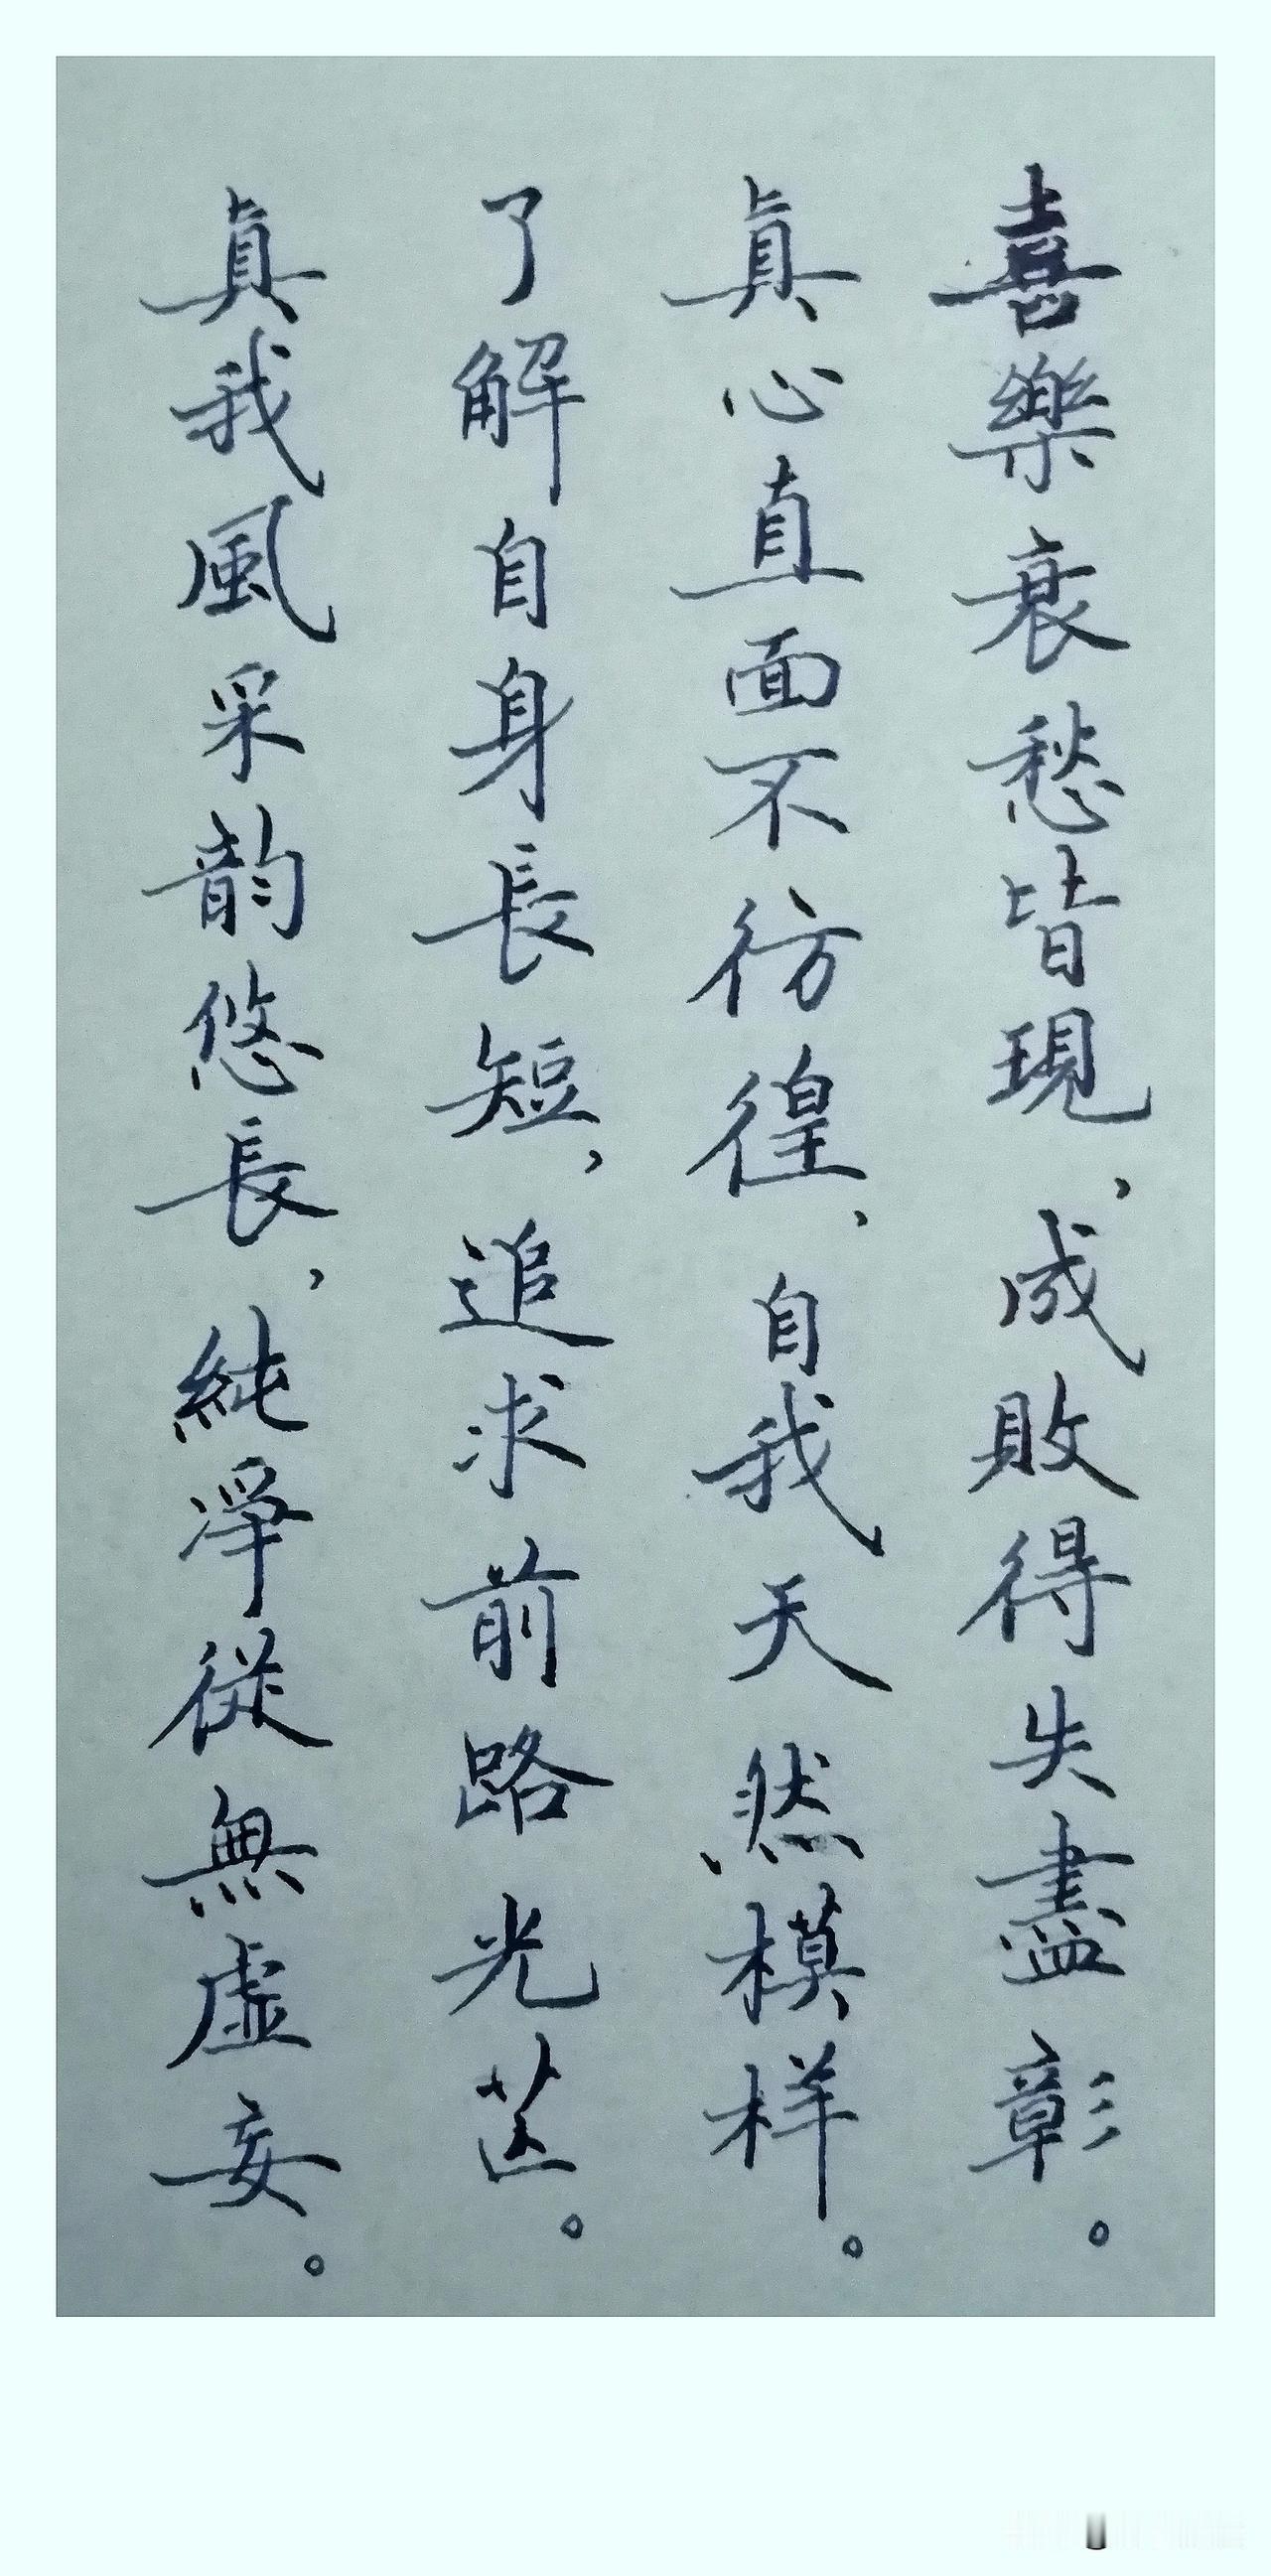 喜樂衰愁皆現，成敗得失盡彰。
真心直面不彷徨，自我天然模样。
了解自身長短，追求前路光芒。
真我風采韵悠長，純淨從無虛妄。